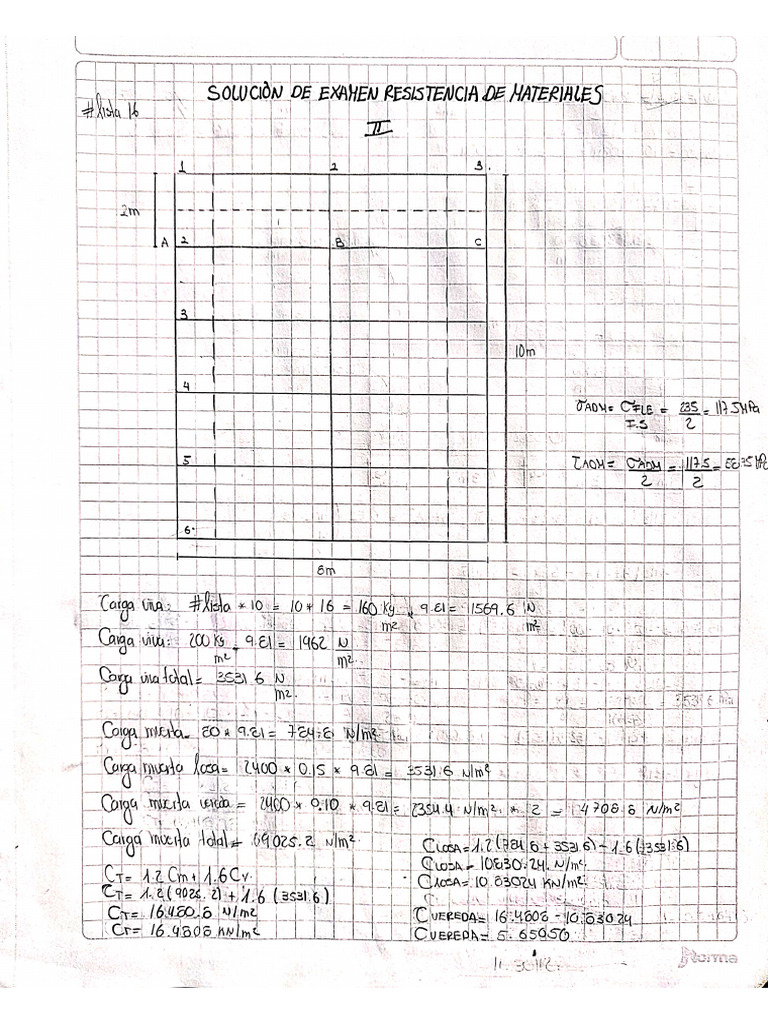 SOLUCIÓN DE EXAMEN RESISTENCIA DE MATERIALES
#lista 16
II
1 2 3.
2m
A 2 B C
3
10m
4
σADM = σFLE = 235 = 117.5 MPa
F.S 2
5
τADM = σADM = 117.5 = 58.75 MPa
2 2
6.
8m
Carga viva: #lista * 10 = 10 * 16 = 160 kg * 9.81 = 1569.6 N
m² m²
Carga viva: 200 kg * 9.81 = 1962 N
m² m².
Carga viva total = 3531.6 N
m².
Carga muerta = 80 * 9.81 = 784.8 N/m²
Carga muerta losa = 2400 * 0.15 * 9.81 = 3531.6 N/m²
Carga muerta vereda = 2400 * 0.10 * 9.81 = 2354.4 N/m² * 2 = 4708.8 N/m²
Carga muerta total = 9025.2 N/m²
CT = 1.2 Cm + 1.6 Cv
CT = 1.2 (9025.2) + 1.6 (3531.6)
CT = 16480.8 N/m²
CT = 16.4808 KN/m²
CLOSA = 1.2 (784.8 + 3531.6) + 1.6 (3531.6)
CLOSA = 10830.24 N/m²
CLOSA = 10.83024 KN/m²
CVEREDA = 16.4808 - 10.83024
CVEREDA = 5.65056
Norma